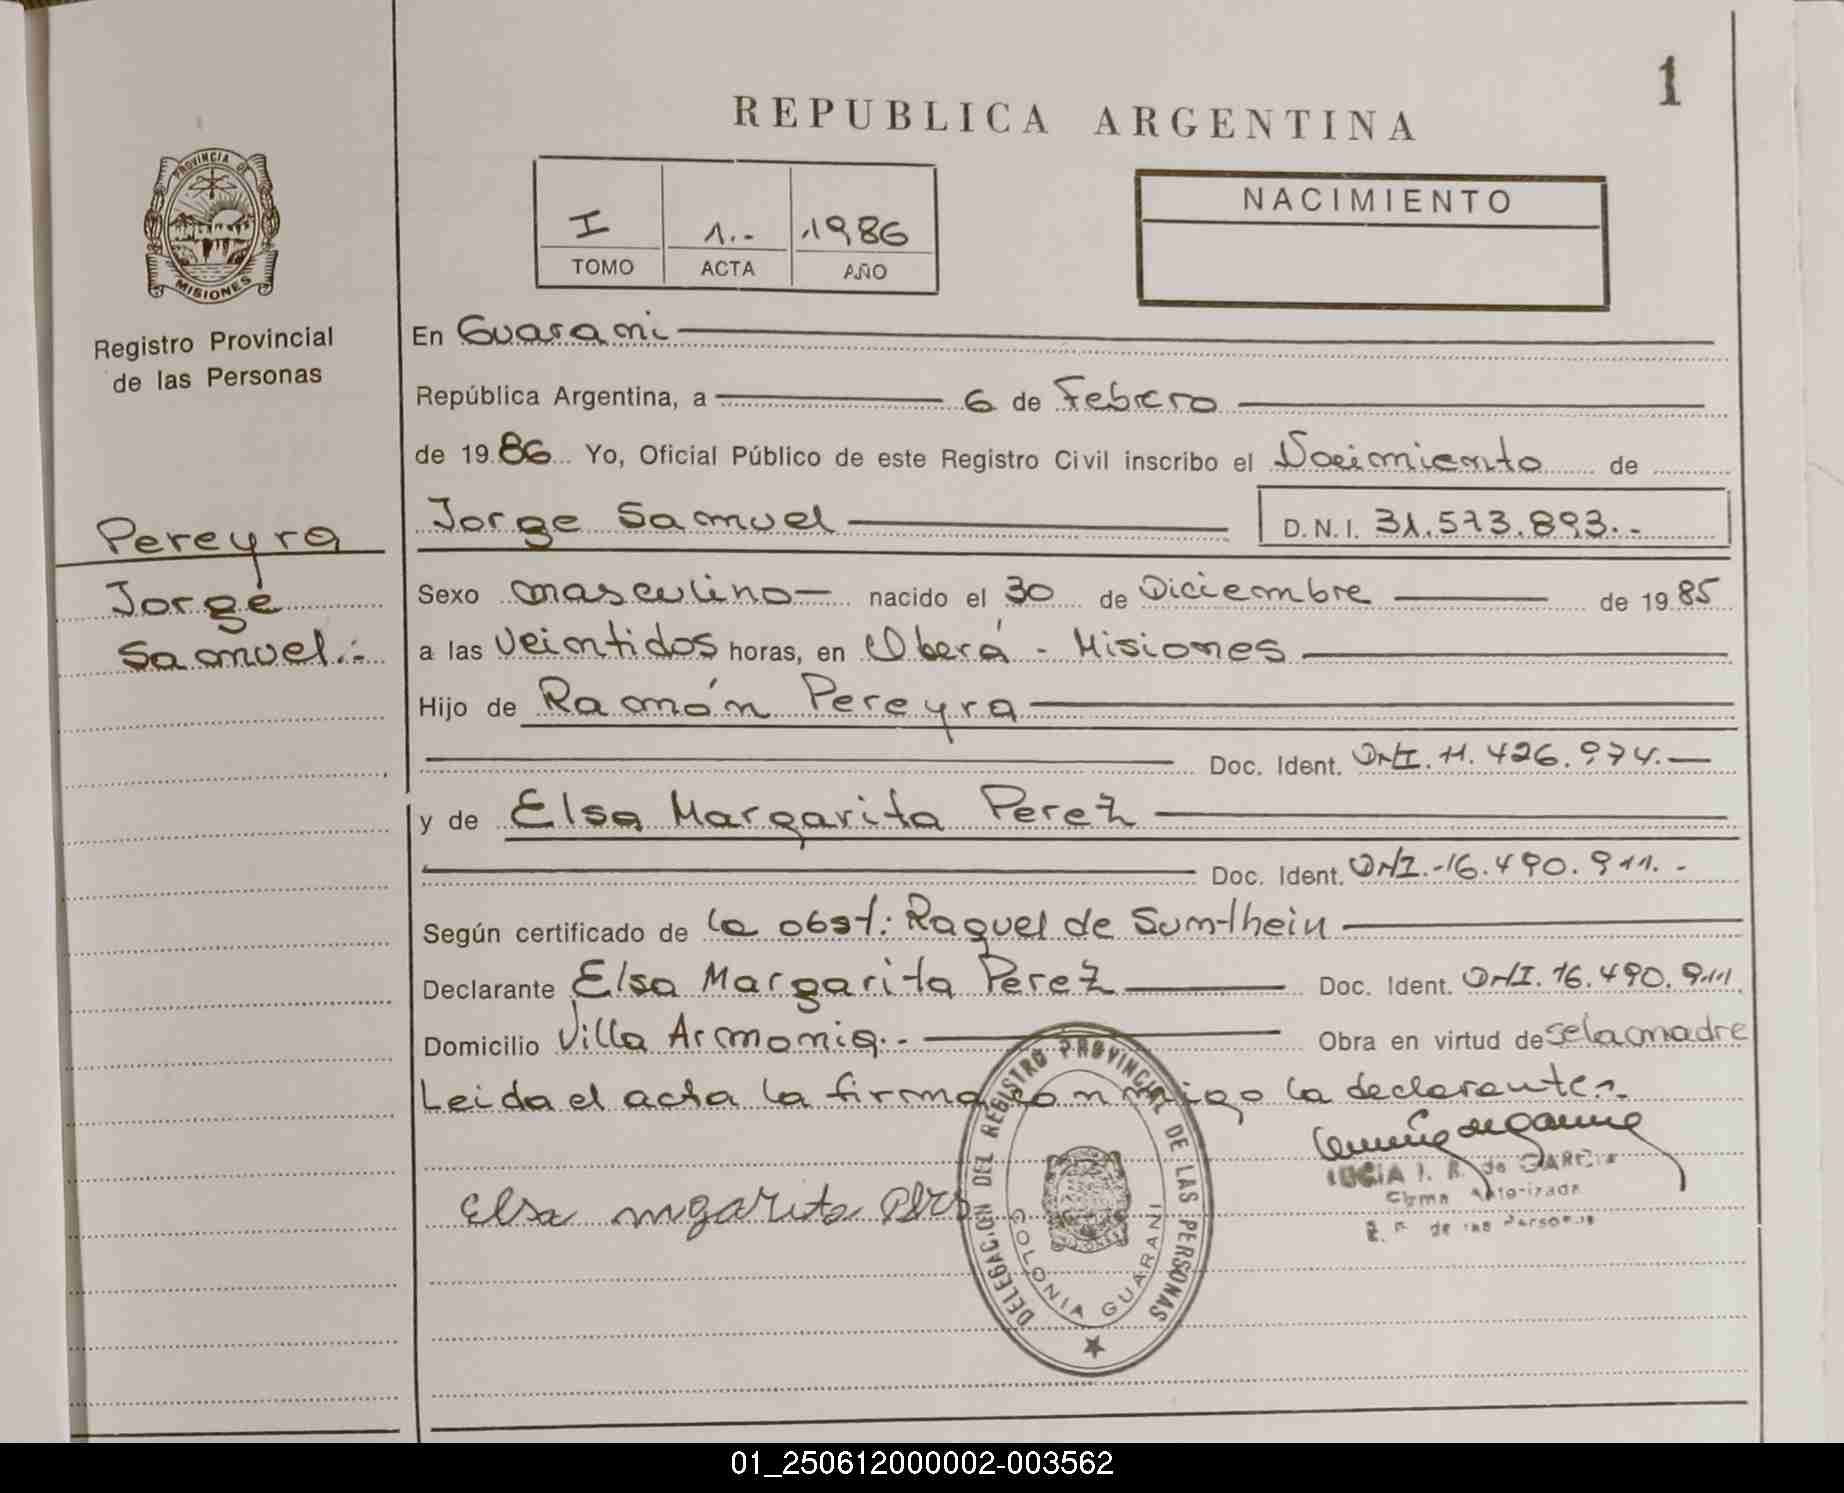 1
REPUBLICA ARGENTINA
PROVINCIA DE
MISIONES
Registro Provincial
de las Personas
I 1.- 1986
TOMO ACTA AÑO
NACIMIENTO
En Guarani
República Argentina, a 6 de Febrero
de 1986 Yo, Oficial Público de este Registro Civil inscribo el Nacimiento de
Jorge Samuel D.N.I. 31.573.893.-
Pereyra
Jorge
Samuel.-
Sexo masculino- nacido el 30 de Diciembre de 1985
a las veintidos horas, en Oberá - Misiones
Hijo de Ramón Pereyra
Doc. Ident. DNI. 11.426.974.-
y de Elsa Margarita Perez
Doc. Ident. DNI.-16.490.911.-
Según certificado de la obst: Raquel de Sumthein
Declarante Elsa Margarita Perez Doc. Ident. DNI. 16.490.911
Domicilio Villa Armonia.- Obra en virtud de se la madre
Leida el acta la firma conmigo la declarante.-
Elsa mgarita
DELEGACION DEL REGISTRO PROVINCIAL DE LAS PERSONAS
COLONIA GUARANI
LUCIA I. R. de GARCIA
Firma Autorizada
R. P. de las Personas
01_250612000002-003562